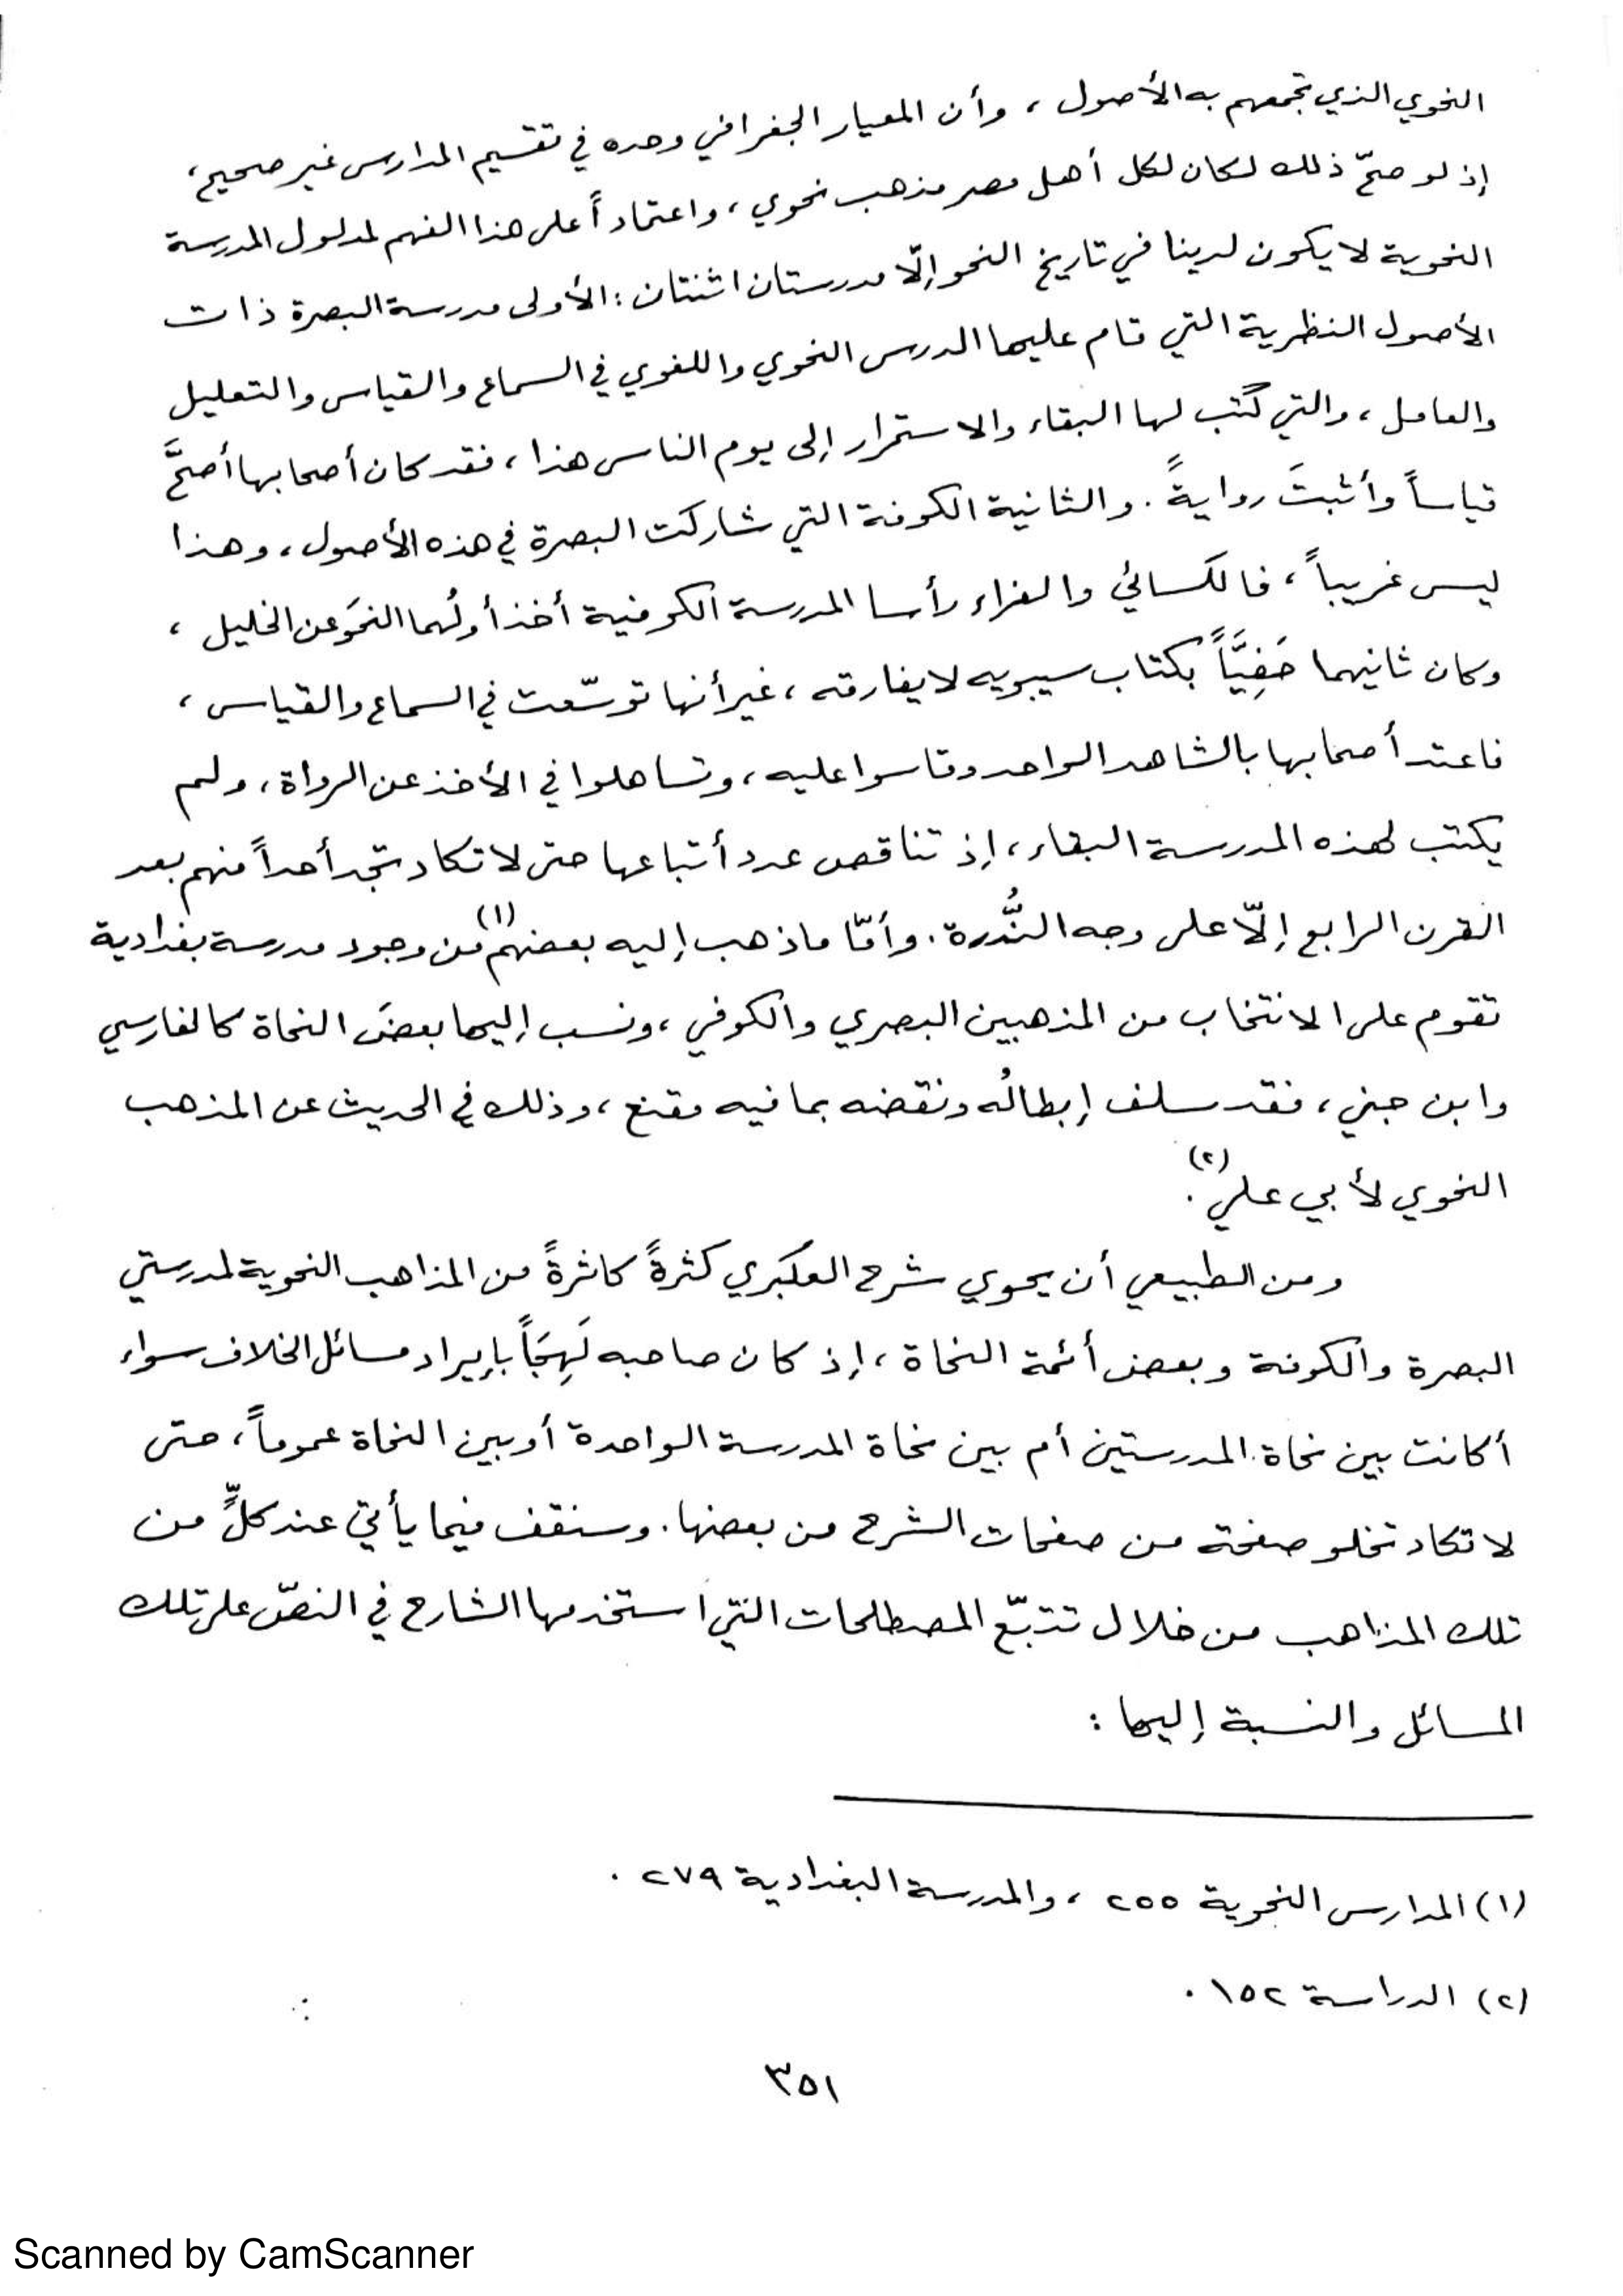 النحوي الذي تجمعهم به الأصول ، وأن المعيار الجغرافي وحده في تقسيم المدارس غير صحيح ،
إذ لو صحّ ذلك لكان لكل أهل مصر مذهب نحوي ، واعتماداً على هذا الفهم لمدلول المدرسة
النحوية لا يكون لدينا في تاريخ النحو إلّا مدرستان اثنتان : الأولى مدرسة البصرة ذات
الأصول النظرية التي قام عليها الدرس النحوي واللغوي في السماع والقياس والتعليل
والعامل ، والتي كُتب لها البقاء والاستمرار إلى يوم الناس هذا ، فقد كان أصحابها أصحَّ
قياساً وأثبتَ روايةً . والثانية الكوفة التي شاركت البصرة في هذه الأصول ، وهذا
ليس غريباً ، فالكسائي والفراء رأسا المدرسة الكوفية أخذ أولُهما النحوَ عن الخليل ،
وكان ثانيهما حَفِيَّاً بكتاب سيبويه لا يفارقه ، غير أنها توسّعت في السماع والقياس ،
فاعتد أصحابها بالشاهد الواحد وقاسوا عليه ، وتساهلوا في الأخذ عن الرواة ، ولم
يكتب لهذه المدرسة البقاء ، إذ تناقص عدد أتباعها حتى لا تكاد تجد أحداً منهم بعد
القرن الرابع إلّا على وجه النُّدرة . وأمّا ما ذهب إليه بعضهم (١) من وجود مدرسة بغدادية
تقوم على الانتخاب من المذهبين البصري والكوفي ، ونسب إليها بعضَ النحاة كالفارسي
وابن جني ، فقد سلف إبطالُه ونقضه بما فيه مقنع ، وذلك في الحديث عن المذهب
النحوي لأبي علي (٢) .
ومن الطبيعي أن يحوي شرح العكبَري كثرةً كاثرةً من المذاهب النحوية لمدرستي
البصرة والكوفة وبعض أئمة النحاة ، إذ كان صاحبه لَهِجَاً بإيراد مسائل الخلاف سواء
أكانت بين نحاة المدرستين أم بين نحاة المدرسة الواحدة أو بين النحاة عموماً ، حتى
لا تكاد تخلو صفحة من صفحات الشرح من بعضها . وسنقف فيما يأتي عند كلٍّ من
تلك المذاهب من خلال تتبّع المصطلحات التي استخدمها الشارح في النصّ على تلك
المسائل والنسبة إليها :
(١) المدارس النحوية ٢٥٥ ، والمدرسة البغدادية ٢٧٩ .
(٢) الدراسة ١٥٢ .
٣٥١
Scanned by CamScanner